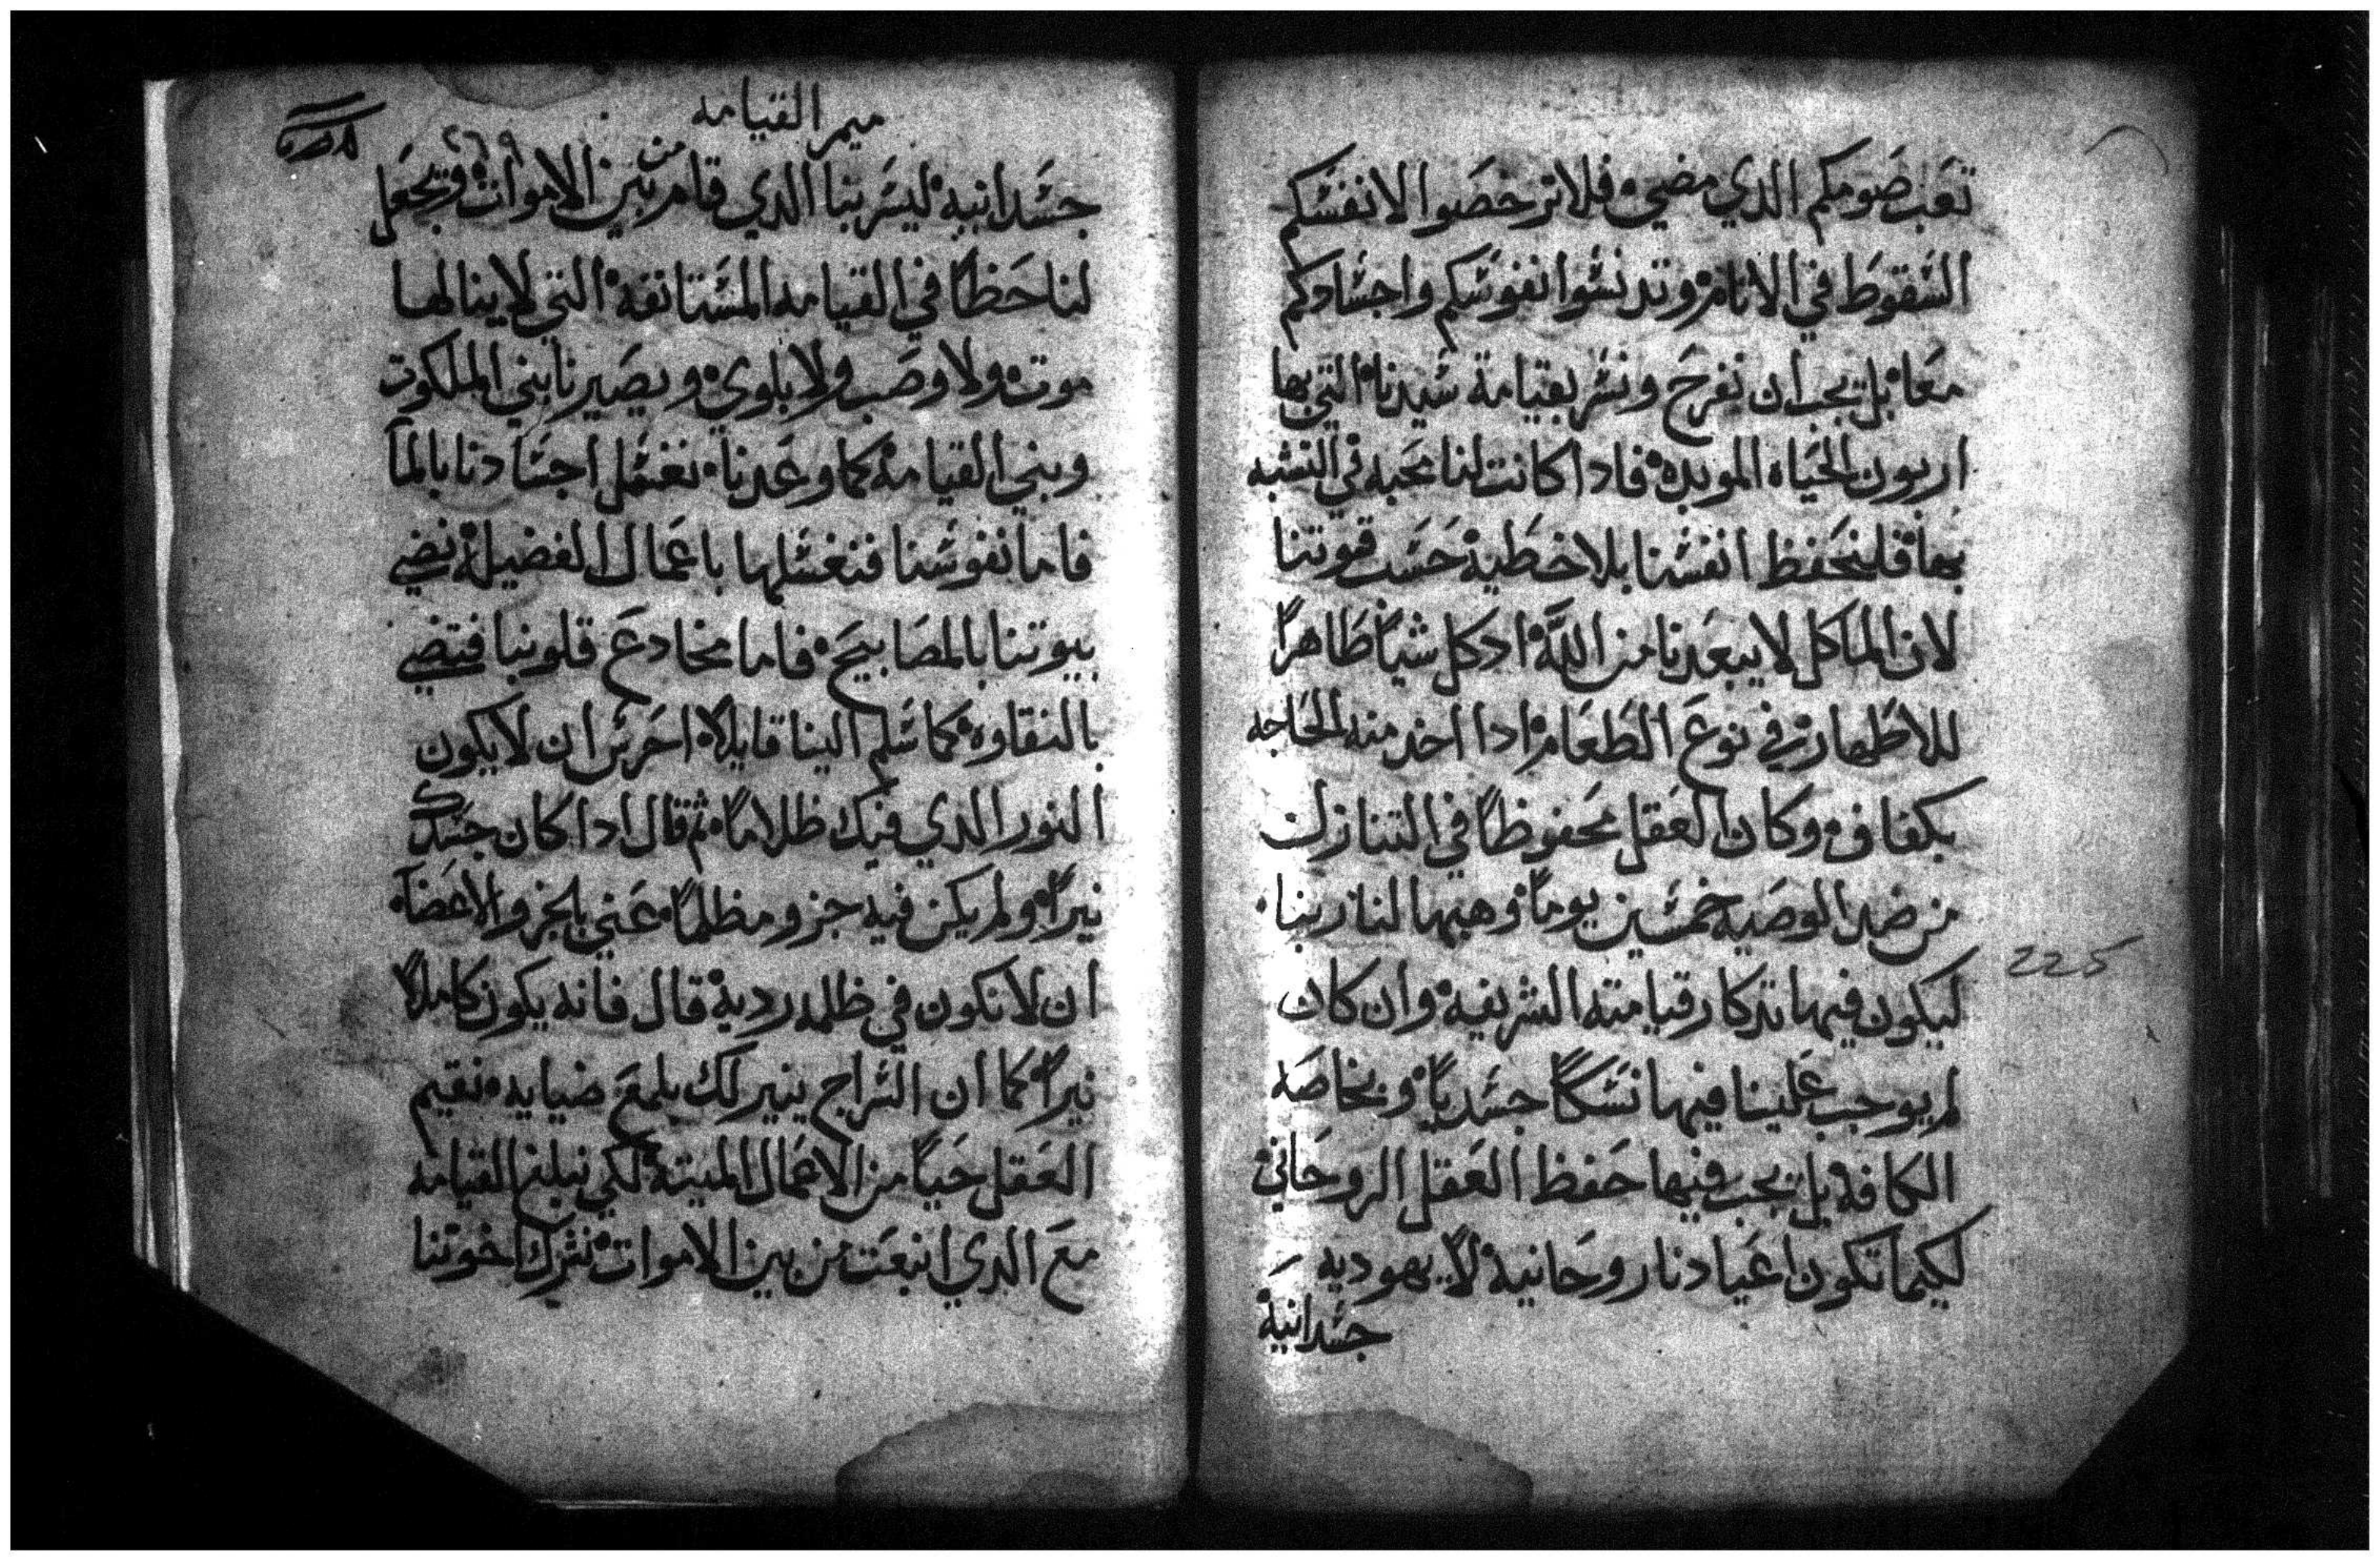 تعب صومكم الدي مضي فلا ترخصوا لانفسكم
السقوط في الاثام وتدنسوا نفوسكم واجسادكم
معا بل يجب ان نفرح ونسر بقيامة سيدنا التي بها
اربون الحياه الموبده فادا كانت لنا محبه في التشبه
بها فلنحفظ انفسنا بلا خطية حسب قوتنا
لان الماكل لا يبعدنا من الله اد كل شياً طاهراً
للاطهار في نوع الطعام ادا اخد منه الحاجه
بكفاف وكان العقل محفوظاً في التنازل
من ضد الوصيه خمسين يوماً وهبها لنا ربنا
ليكون فيها تدكار قيامته الشريفة وان كان
لم يوجب علينا فيها نسكاً جسدياً وبخاصه
الكافة بل يجب فيها حفظ العقل الروحاني
لكيما تكون اعيادنا روحانية لا يهوديه
جسدانية
225
ميمر القيامه
٢٦٩
جسدانيه ليسر بنا الدي قام من بين الاموات ويجعل
لنا حظاً في القيامه المستانفة التي لا ينالها
موت ولا وصب ولا بلوي ويصيرنا بني الملكوت
وبني القيامة كما وعدنا نغسل اجسادنا بالمآ
فاما نفوسنا فنغسلها باعمال الفضيلة نضي
بيوتنا بالمصابيح فاما مخادع قلوبنا فتضي
بالنقاوه كما سلم الينا قايلاً احرس ان لا يكون
النور الدي فيك ظلاماً ثم قال ادا كان جسدك
نيراً ولم يكن فيه جزو مظلماً عني بالجزو الاعضآ
ان لا تكون في ظلمه ردية قال فانه يكون كاملاً
نيراً كما ان السراج ينير لك بلمع ضيايه نقيم
العقل حياً من الاعمال الميتة لكي نبلغ القيامه
مع الدي انبعت من بين الاموات نشرك اخوتنا